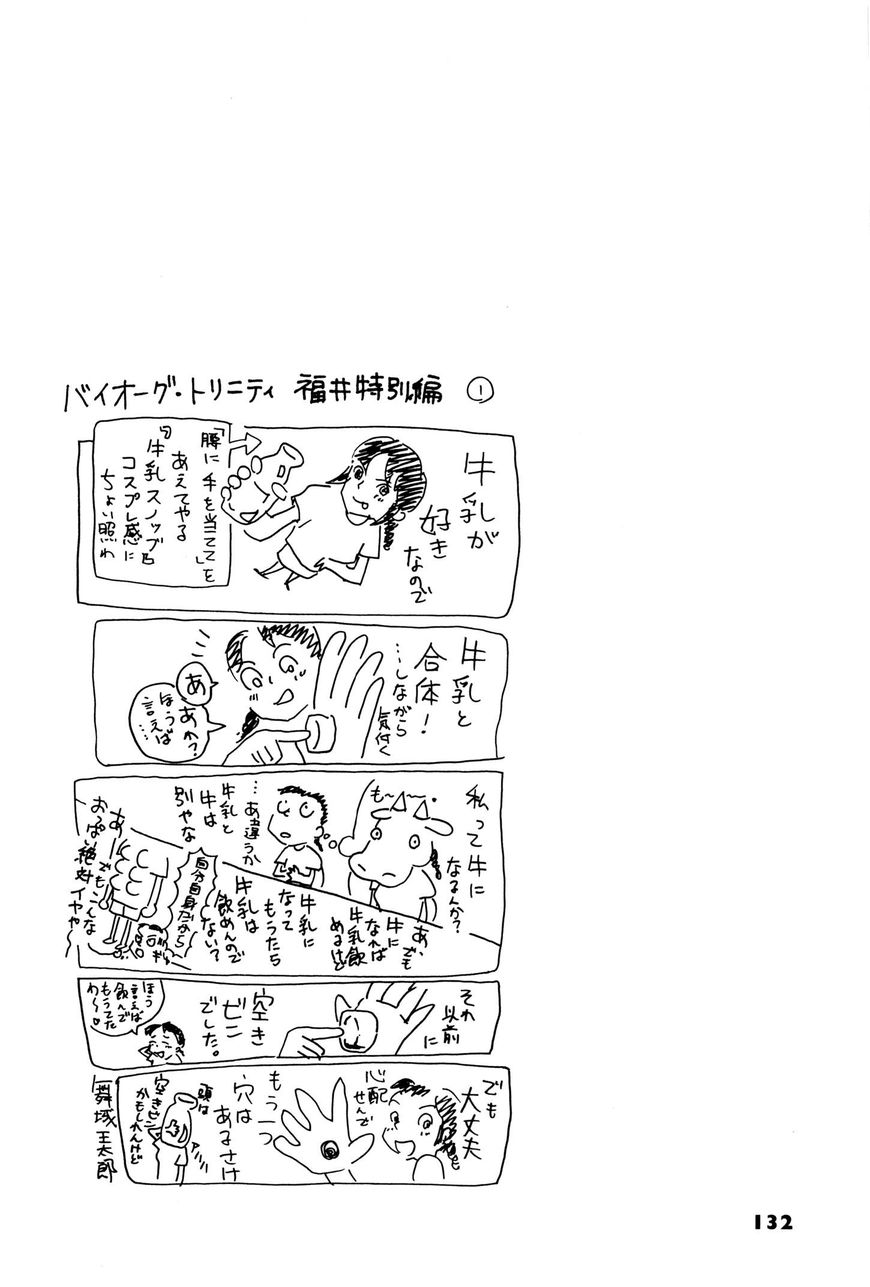 バイオーグ・トリニティ 福井特別編 ①
牛乳が
好き
なので
「腰に手を当てて」を
あえてやる
牛乳スノッブな
コスプレ感に
ちょい照れ
牛乳と
合体!
…しながら
気付く
あ
あか?
ほうゆえば
言えば…
私って牛に
なるんか?
も～～。
…あ違うか
牛乳と
牛は
別やな
あ、でも
牛に
なれば
牛乳飲
めるけど
牛乳に
なって
もうたら
牛乳は
飲めんので
ない?
自分自身だから
あ
でもこんな
おっぱい絶対イヤや
それ
以前
に
空き
ビン
でした。
ほう
言えば
飲んで
もうてた
わ～♡
でも
大丈夫
心配
せんで
もう一つ
穴は
あるさけ
頭は
空きビン
かもしれんけど
舞城王太郎
132